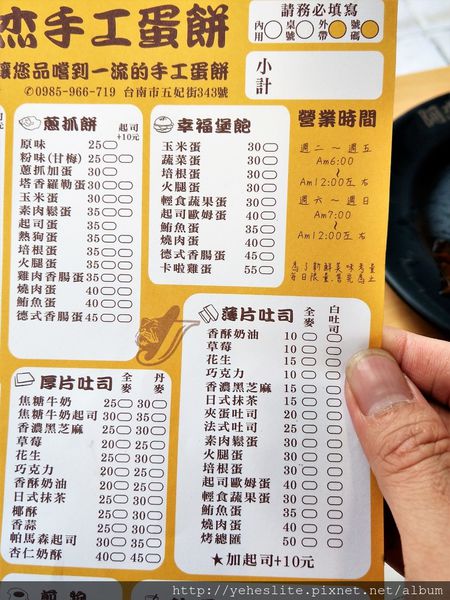 杰手工蛋餅
讓您品嚐到一流的手工蛋餅
✆0985-966-719 台南市五妃街343號
請務必填寫
內用○ 桌號○ 外帶○ 號碼○
小計
蔥抓餅 起司+10元
原味 25
粉味(甘梅) 25
蔥抓加蛋 30
塔香羅勒蛋 30
玉米蛋 30
素肉鬆蛋 35
起司蛋 35
熱狗蛋 35
培根蛋 35
火腿蛋 35
雞肉香腸蛋 35
燒肉蛋 40
鮪魚蛋 40
德式香腸蛋 45
幸福堡飽
玉米蛋 30
蔬菜蛋 30
培根蛋 30
火腿蛋 30
輕食蔬果蛋 30
起司歐姆蛋 30
鮪魚蛋 35
燒肉蛋 40
德式香腸蛋 40
卡啦雞蛋 55
營業時間
週二～週五
Am6:00
～
Am12:00左右
週六～週日
Am7:00
～
Am12:00左右
為了新鮮美味考量
每日限量.售完為止
厚片吐司 全麥 丹麥
焦糖牛奶 25 30
焦糖牛奶起司 30 35
香濃黑芝麻 25 30
草莓 20 25
花生 25 30
巧克力 20 25
香酥奶油 20 25
日式抹茶 20 25
椰酥 25 30
香蒜 25 30
帕馬森起司 30 35
杏仁奶酥 40 45
薄片吐司 全麥 白吐司
香酥奶油 10
草莓 10
花生 15
巧克力 10
香濃黑芝麻 15
日式抹茶 15
夾蛋吐司 20
法式吐司 25
素肉鬆蛋 30
火腿蛋 30
培根蛋 30
起司歐姆蛋 30
輕食蔬果蛋 30
鮪魚蛋 35
燒肉蛋 40
烤總匯 50
★加起司+10元
http://yeheslite.pixnet.net/album